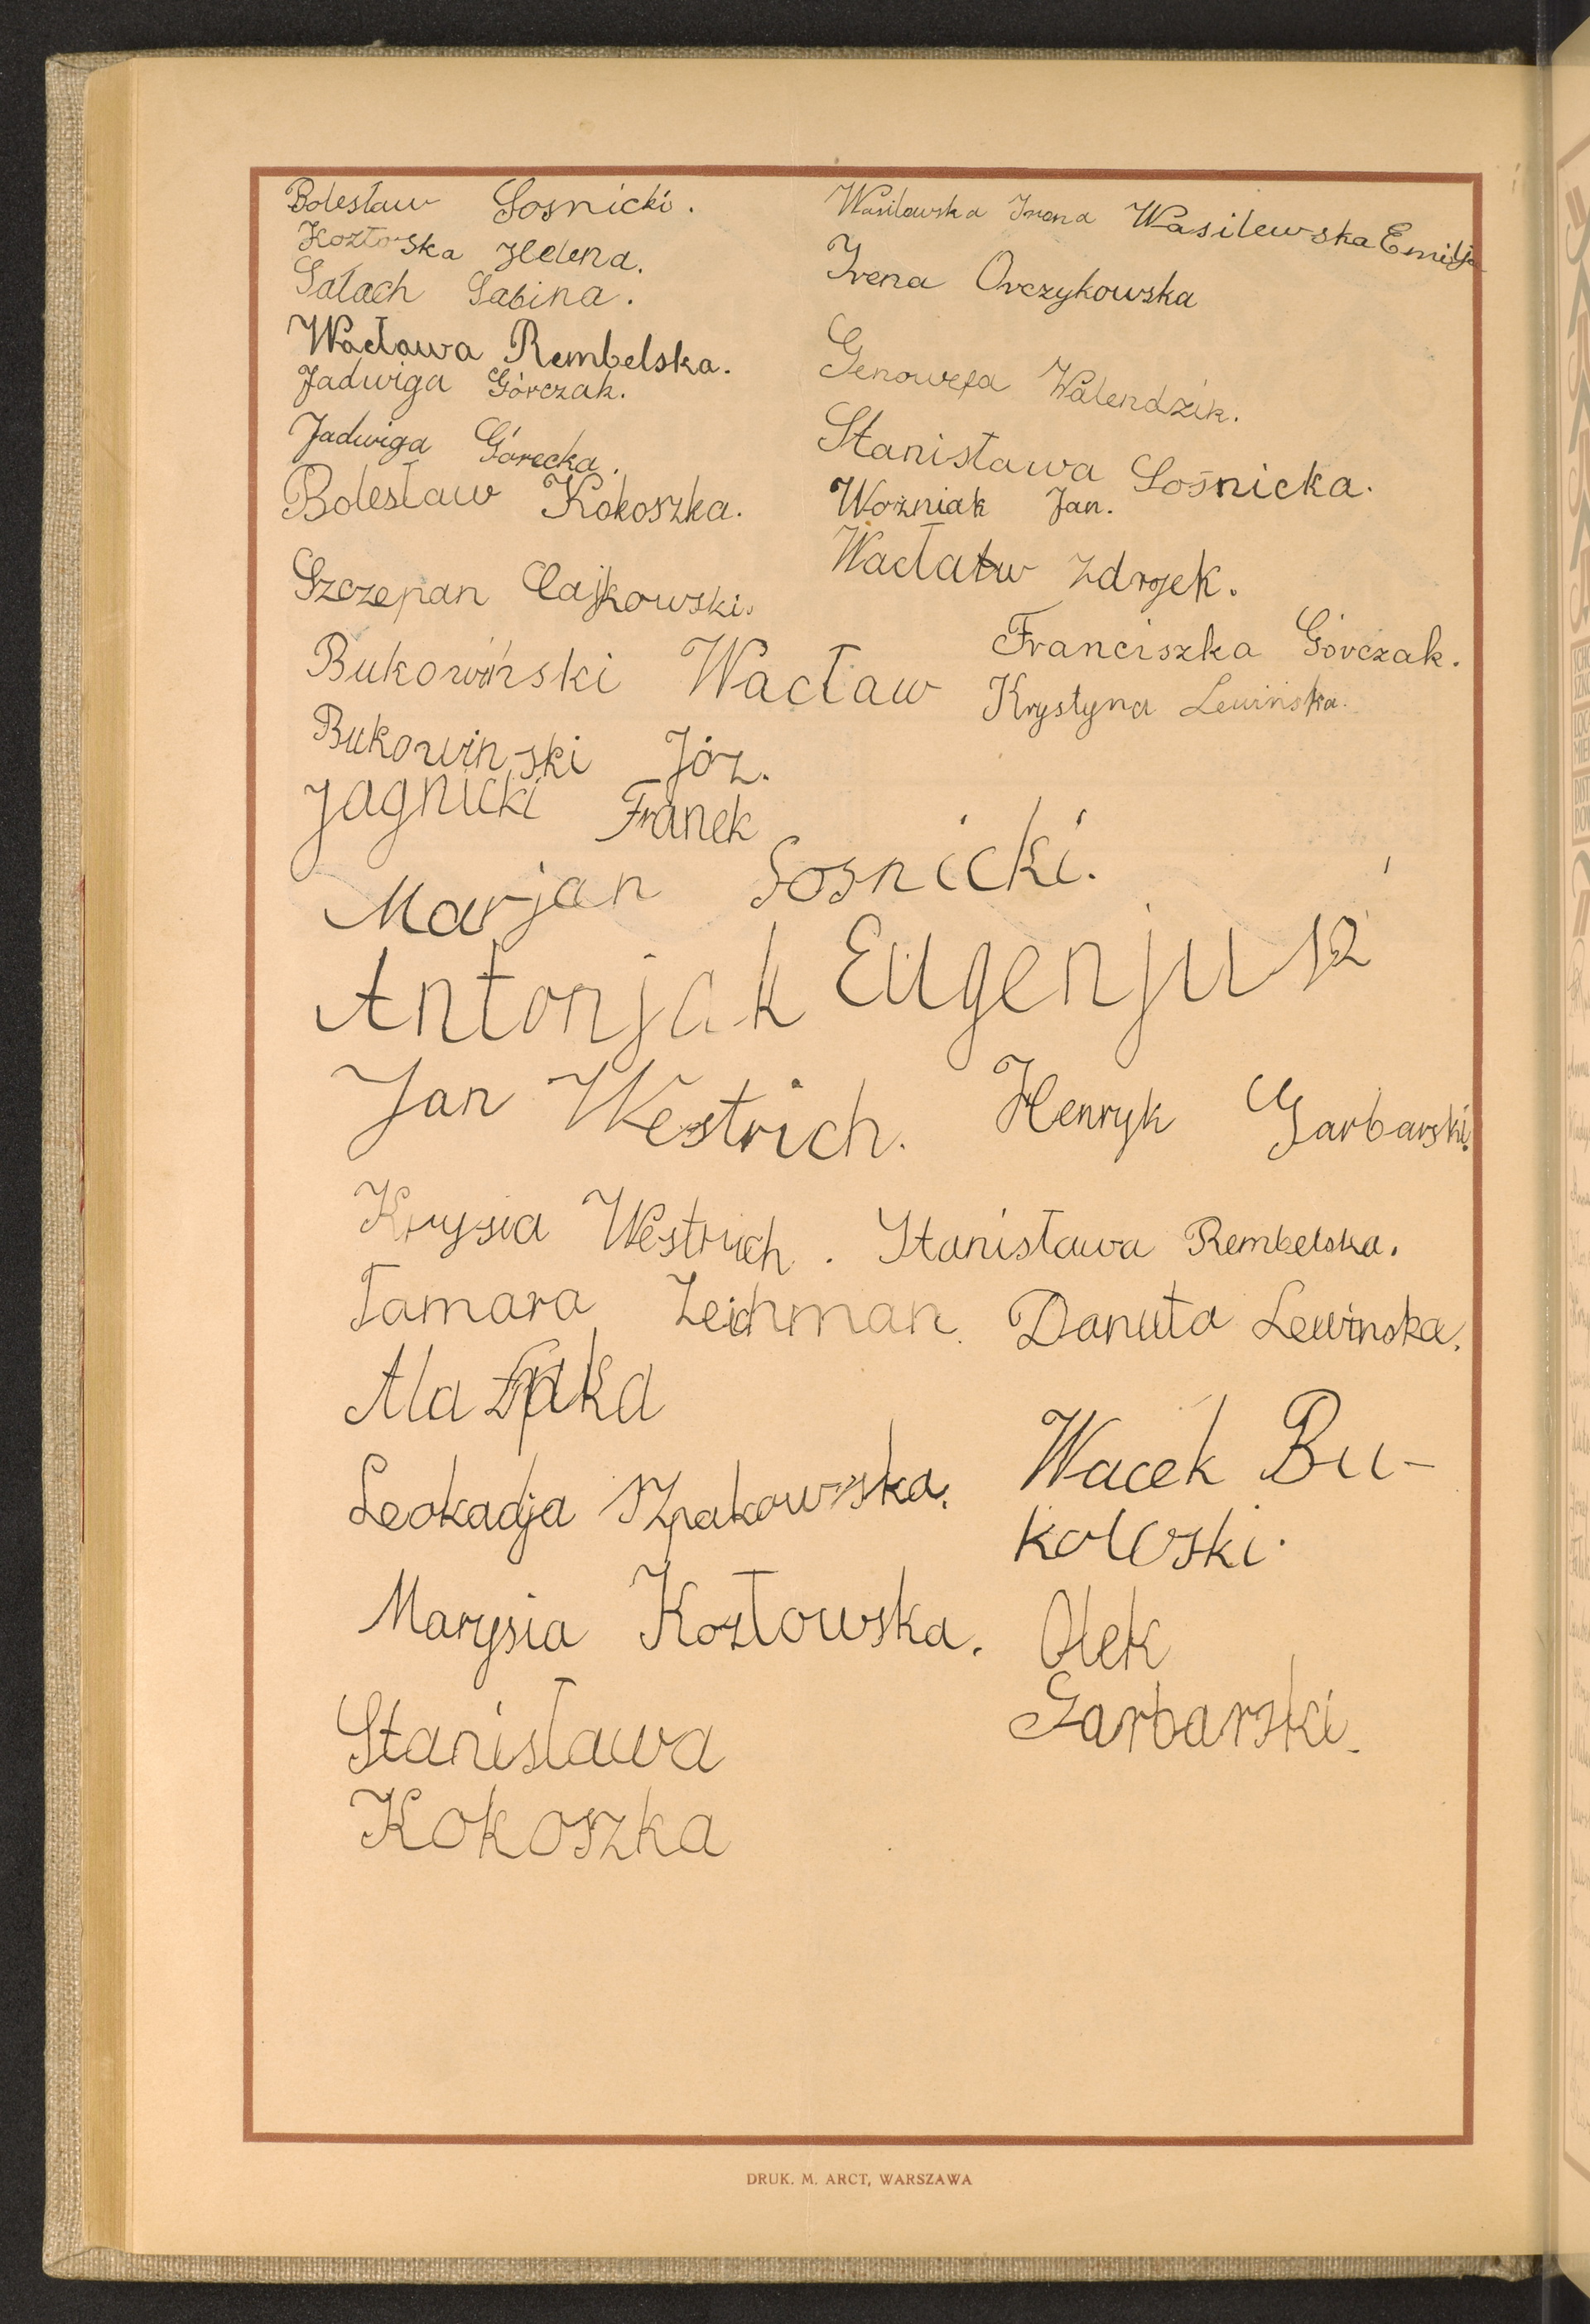 Bolesław Sosnicki.
Kozłoska Helena.
Sałach Sabina.
Wacława Rembelska.
Jadwiga Górczak.
Jadwiga Górecka.
Bolesław Kokoszka.
Szczepan Cajkowski.
Bukowiński Wacław
Bukowinski Józ.
Jagnicki Franek
Wasilewska Irena Wasilewska Emilja
Irena Orczykowska
Genowefa Walendzik.
Stanisława Sośnicka.
Woźniak Jan.
Wacław Zdrojek.
Franciszka Górczak.
Krystyna Lewińska.
Marjan Sosnicki.
Antonjak Eugenjusz
Jan Westrich. Henryk Garbarski.
Krysia Westrych. Stanisława Rembelska.
Tamara Zeichman. Danuta Lewinska.
Ala
Leokadja Szpakowska.
Marysia Kozłowska.
Stanisława
Kokoszka
Wacek Bu-
kowski.
Olek
Garbarski.
DRUK. M. ARCT, WARSZAWA